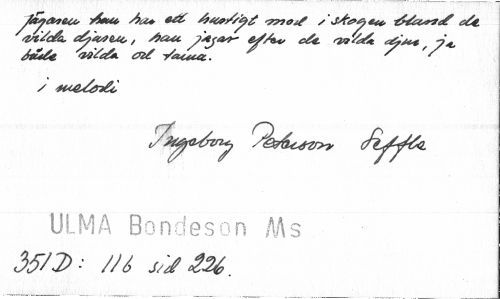 Jägaren han har ett hurtigt mod i skogen bland de
vilda djuren, han jagar efter de vilda djur, ja
både vilda od tama.
i melodi
Ingeborg Peterson Seffle
ULMA Bondeson Ms
351D: 116 sid 226.